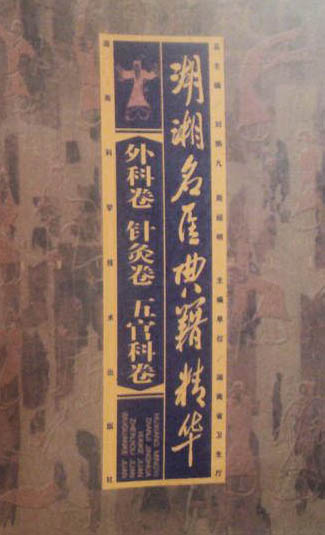 总主编 刘炳凡 周绍明 主编单位/湖南省卫生厅
湖湘名医典籍精华
外科卷 针灸卷 五官科卷
湖南科学技术出版社
HUXIANG MINGYI
DIANJI JINGHUA
WAIKE JUAN
ZHENJIU JUAN
WUGUANKE JUAN